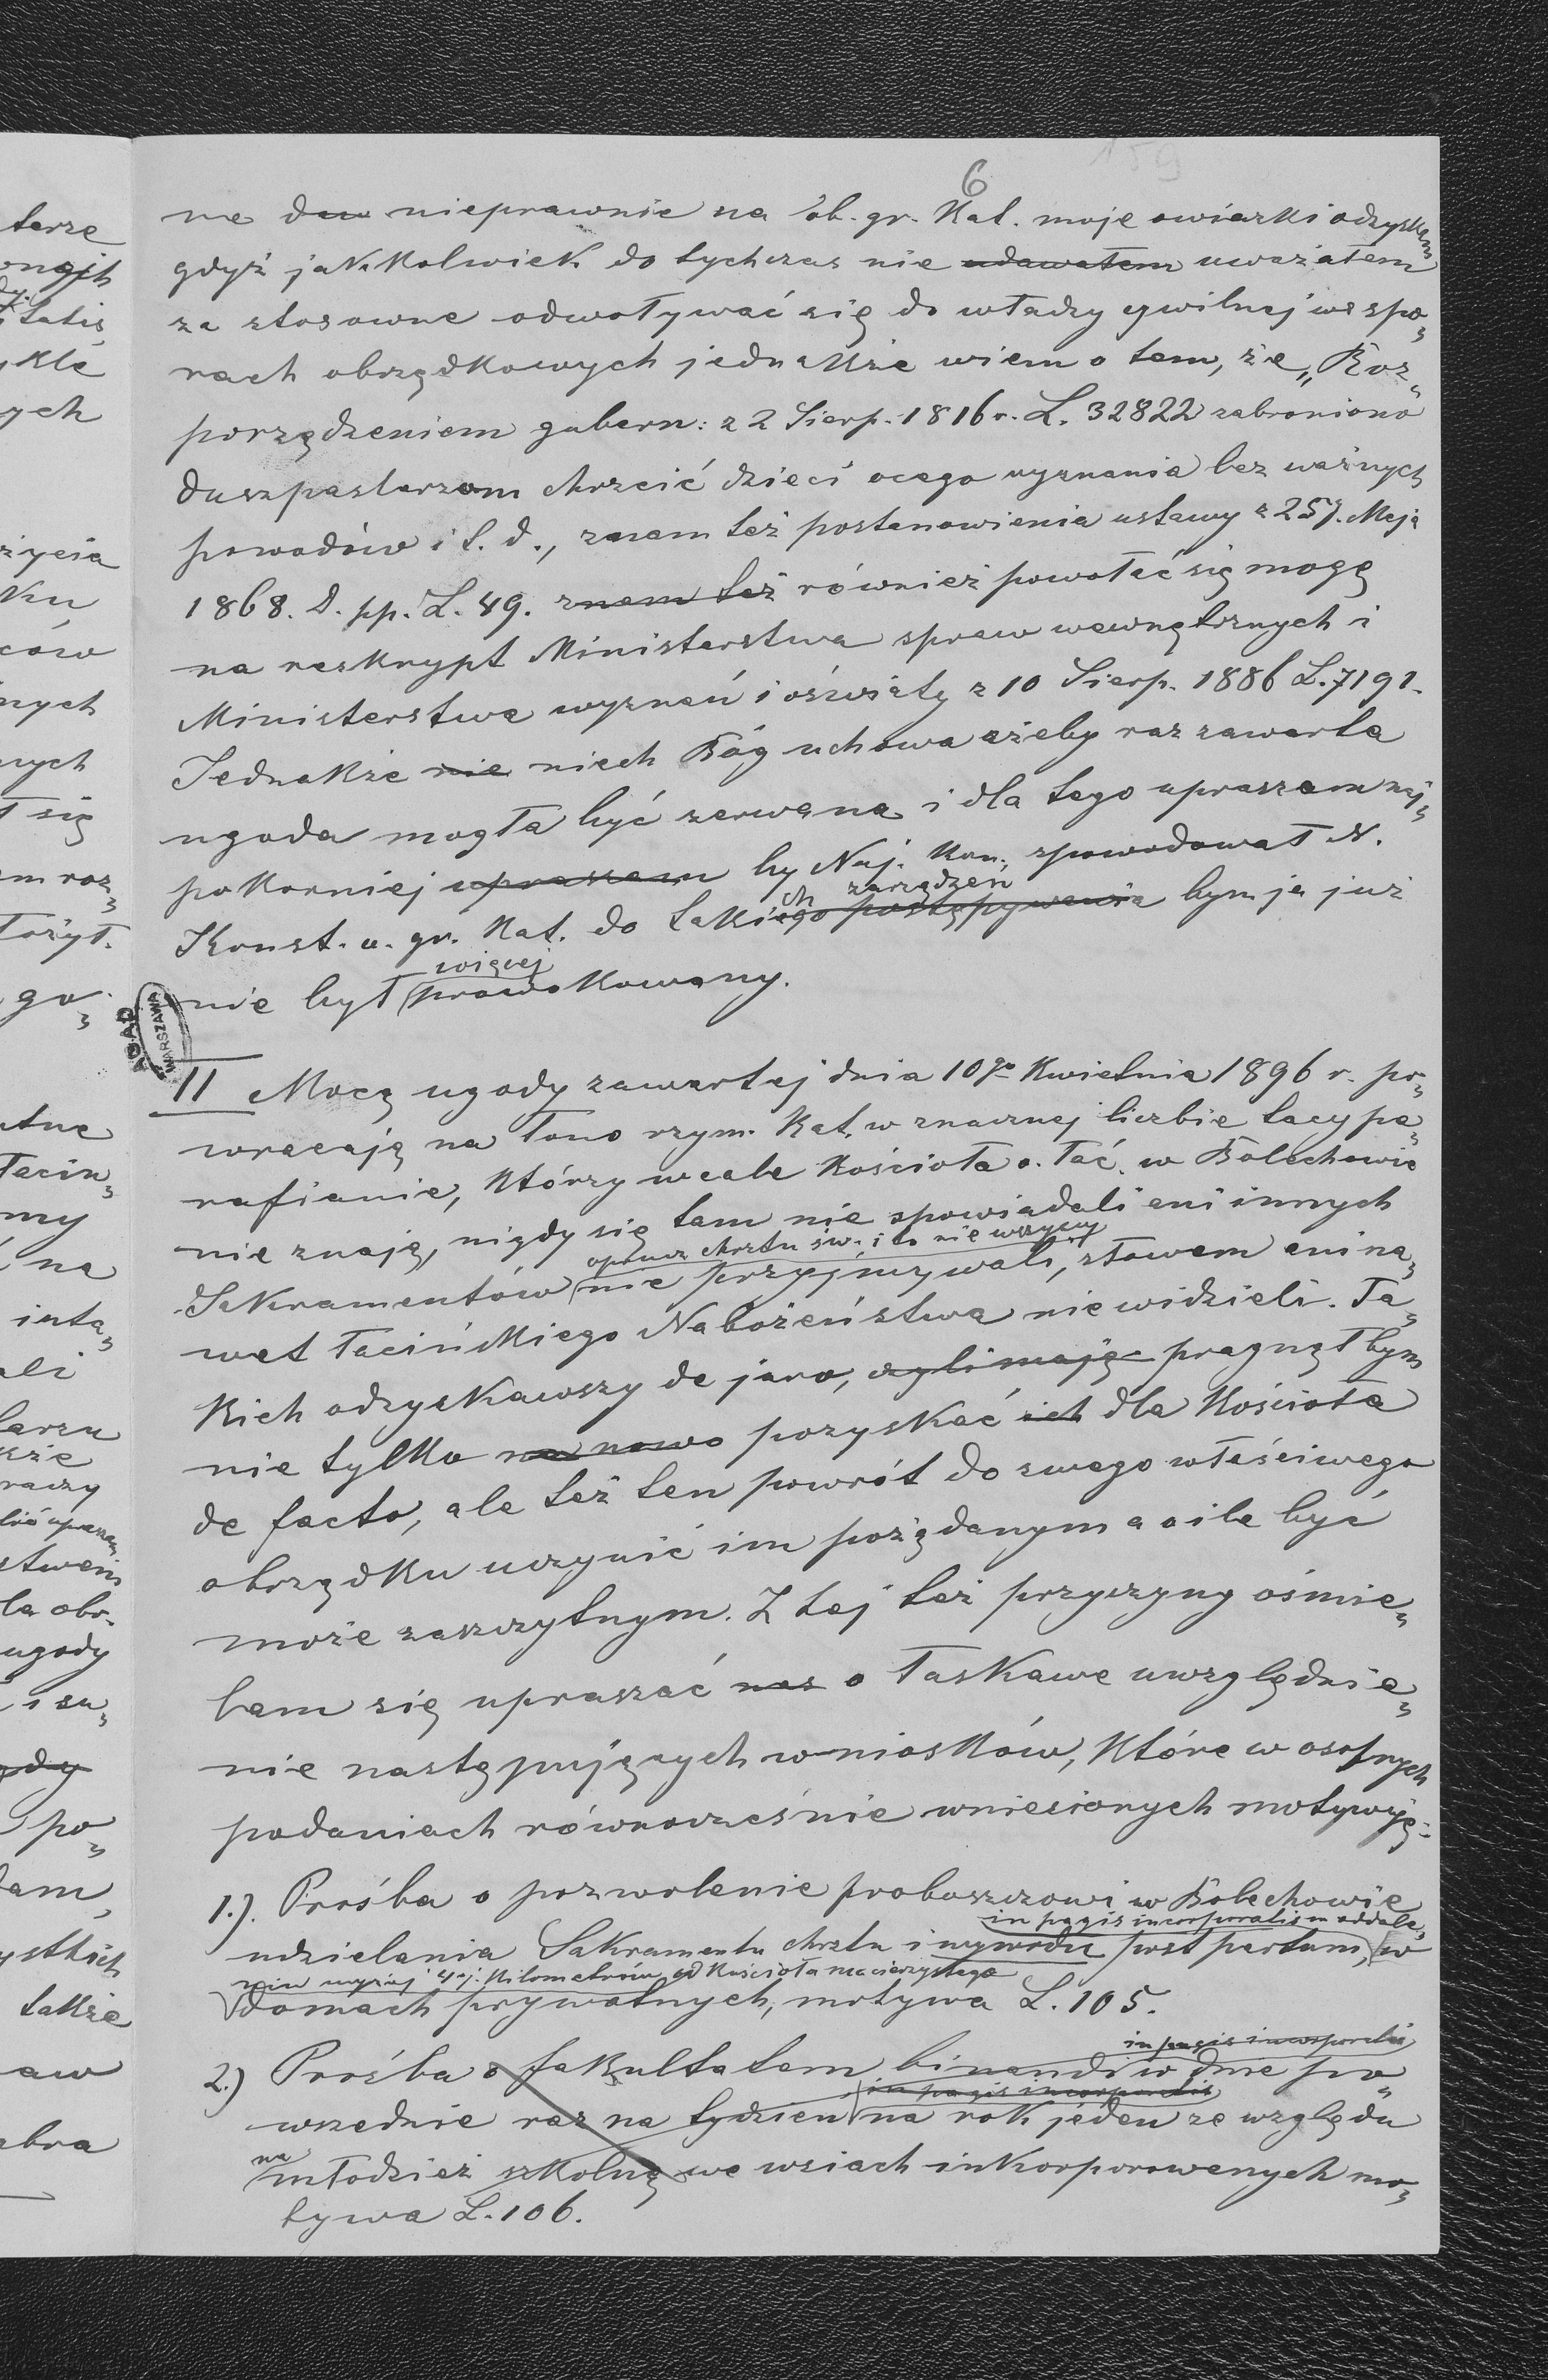 6
159
ne dew nieprawnie na ob. gr. Kat. moje owieczki odzyskam
gdyż jakkolwiek do tychczas nie udawałem uważałem
za stosowne odwoływać się do władzy cywilnej we spo„
rach obrządkowych jednakże wiem o tem, że „Roz„
porządzeniem gubern: z 2 Sierp. 1816 r. L. 32822 zabroniono
duszpasterzom chrzcić dzieci ocego wyznania bez ważnych
powodów i t. d., znam też postanowienia ustawy z 25g. Maja
1868. D. pp. L. 49. znam też również powołać się mogę
na reskrypt Ministerstwa spraw wewnętrznych i
Ministerstwa wyznań i oświaty z 10 Sierp. 1886 L. 7191.
Jednakże nie niech Bóg uchowa ażeby raz zawarta
ugoda mogła być zerwaną i dla tego upraszam naj„
pokorniej upraszam by Naj. Kon. spowodował N.
ch zarządzeń
Konst. o. gr. Kat. do takiego postępywania bym ja już
więcej
nie był prowokowany.
AGAD
WARSZAWA
II Mocą ugody zawartej dnia 10go Kwietnia 1896 r. po„
wracają na łono rzym. Kat. w znacznej liczbie tacy pa„
rafianie, którzy wcale Kościoła o. łać. w Bolechowie
nie znają, nigdy się tam nie spowiadali ani innych
oprócz chrztu św. i to nie wszyscy
Sakramentów nie przyjmywali, słowem ani na„
wet łacińskiego Nabożeństwa nie widzieli. Ta„
kich odzyskawszy de jure, pragnąłbym
nie tylko na nowo pozyskać ich dla Kościoła
de facto, ale też ten powrót do swego właściwego
obrządku uczynić im pożądanym a o ile być
może zaszczytnym. Z tej też przyczyny ośmie„
lam się upraszać nas o łaskawe uwzględnie„
nie następujących wniosków, które w osobnych
podaniach równocześnie wniesionych motywuję:
1.). Prośba o pozwolenie proboszczowi w Bolechowie
in pagis incorporatis m oddale„
udzielania Sakramentu chrztu i wywodu post partum, w
niu wyżej 4ej. Kilometrów od Kościoła macierzystego
domach prywatnych, motywa L. 105.
in pagis incorporatis
2.) Prośba o fakultatem binandi w dnie po„
in pagis incorporatis
wszednie raz na tydzien na rok jeden ze względu
na
młodzież szkolną we wsiach inkorporowanych mo„
tywa L. 106.